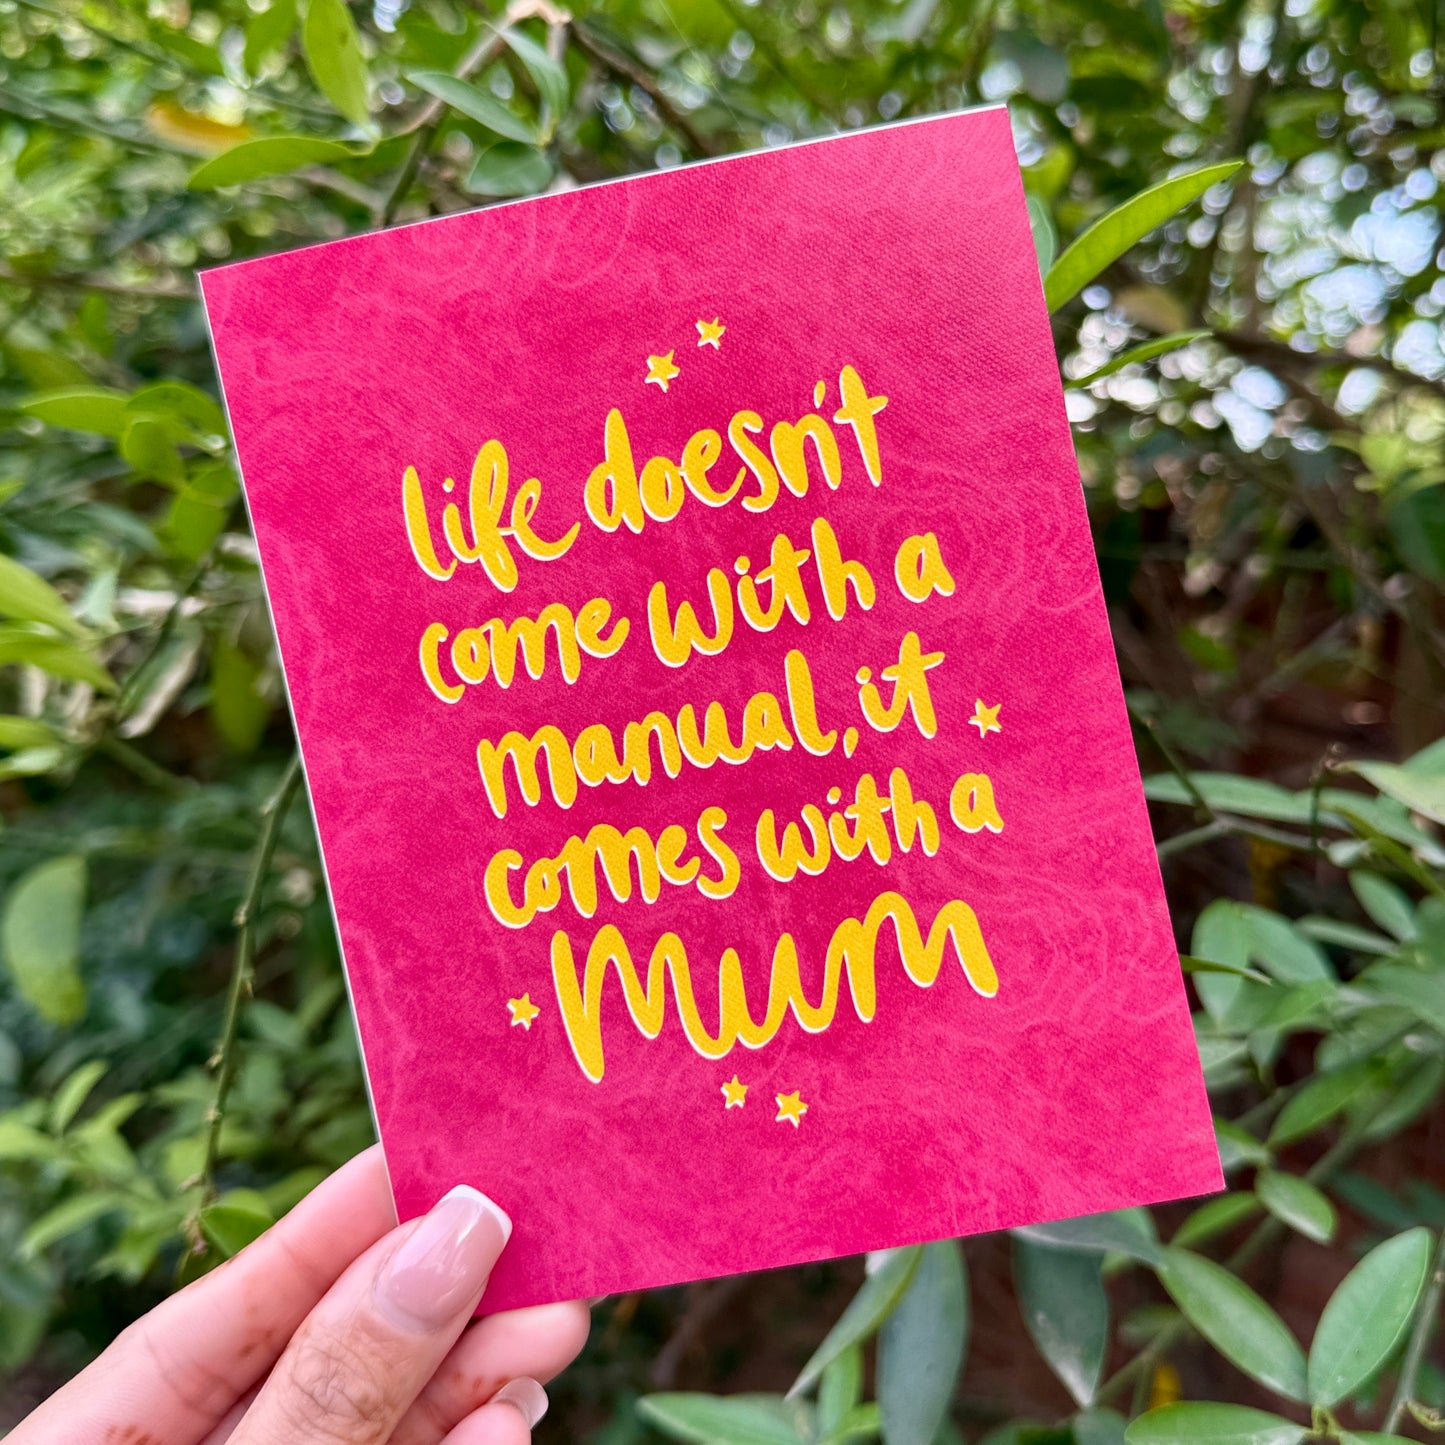 life doesn't
come with a
manual, it
comes with a
Mum